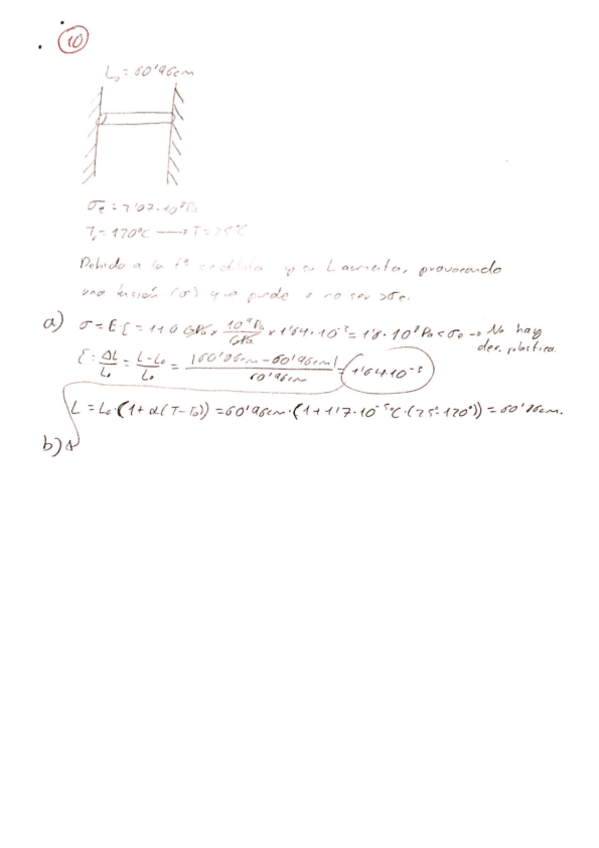 10
L₀ = 60'96cm
σe = 7'02·10⁸Pa
T₀ = 120ºC → T = 25ºC
Debido a la tª se dilata y su L aumenta, provocando
una tensión (σ) que puede o no ser >σe.
a) σ = E·ξ = 110 GPa × 10⁹Pa/GPa × 1'64·10⁻³ = 1'8·10⁸Pa < σe → No hay
der. plástica.
ξ = ΔL/L₀ = L-L₀/L₀ = |60'86cm - 60'96cm|/60'96cm = 1'64·10⁻³
L = L₀·(1 + α(T-T₀)) = 60'96cm·(1 + 1'7·10⁻⁵ºC·(25º-120º)) = 60'86cm.
b) Δ